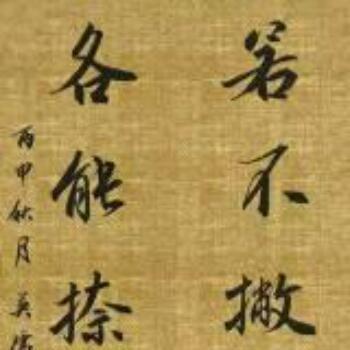 若不撇
各能捺
丙申秋月